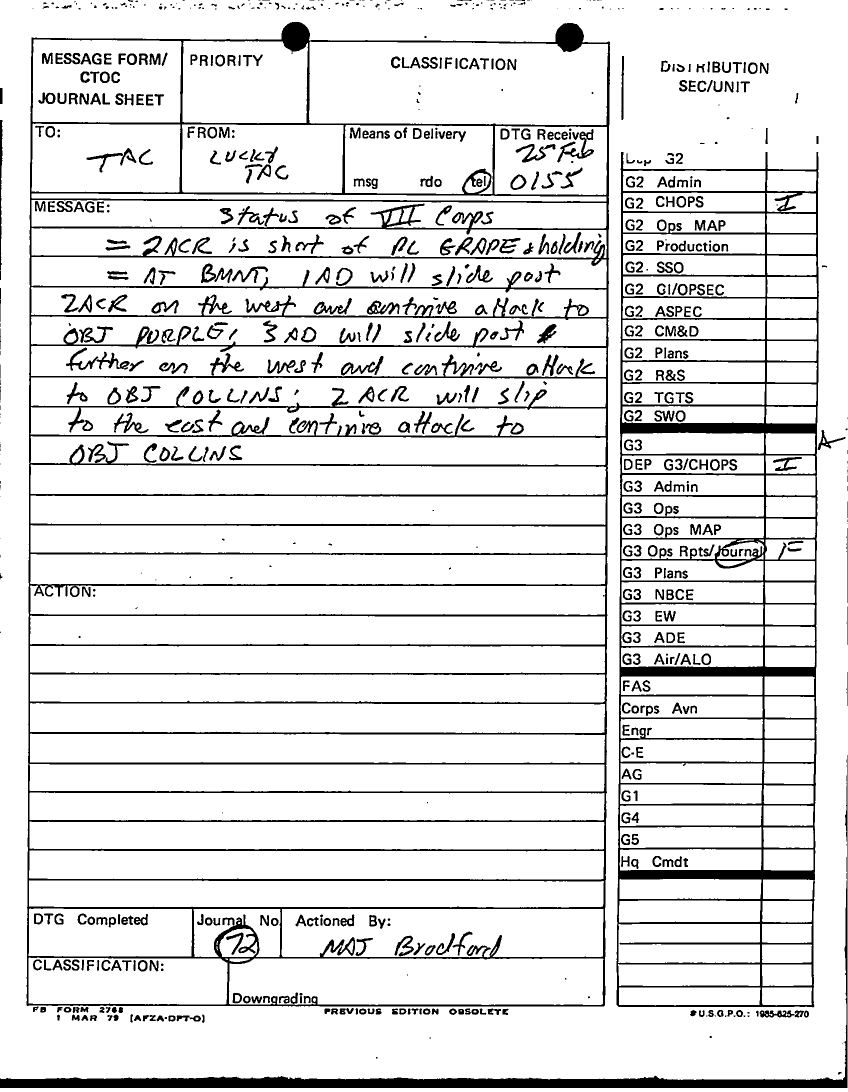 MESSAGE FORM/
CTOC
JOURNAL SHEET
PRIORITY
CLASSIFICATION
DISTRIBUTION
SEC/UNIT
TO:
TAC
FROM:
LUCKY
TAC
Means of Delivery
msg rdo tel
DTG Received
25 Feb
0155
MESSAGE:
Status of VII Corps
= 2ACR is short of PL GRAPE & holding
= AT BMNT, 1AD will slide past
2ACR on the west and continue attack to
OBJ PURPLE; 3 AD will slide past
further on the west and continue attack
to OBJ COLLINS; 2 ACR will slip
to the east and continue attack to
OBJ COLLINS
ACTION:
DTG Completed
Journal No.
72
Actioned By:
MAJ Bradford
CLASSIFICATION:
Downgrading
FB FORM 2768
1 MAR 79 (AFZA-DPT-O)
PREVIOUS EDITION OBSOLETE
Dep G2
G2 Admin
G2 CHOPS I
G2 Ops MAP
G2 Production
G2 SSO
G2 GI/OPSEC
G2 ASPEC
G2 CM&D
G2 Plans
G2 R&S
G2 TGTS
G2 SWO
G3 A
DEP G3/CHOPS I
G3 Admin
G3 Ops
G3 Ops MAP
G3 Ops Rpts/Journal F
G3 Plans
G3 NBCE
G3 EW
G3 ADE
G3 Air/ALO
FAS
Corps Avn
Engr
C-E
AG
G1
G4
G5
Hq Cmdt
U.S.G.P.O.: 1985-625-270